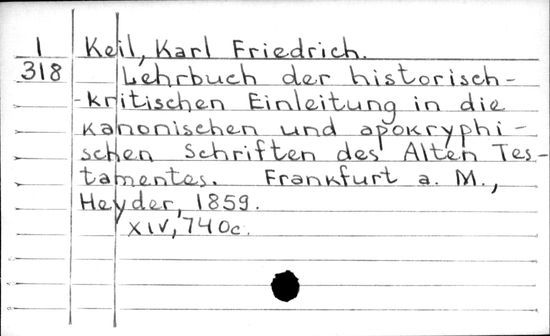 1 Keil, Karl Friedrich.
318 Lehrbuch der historisch-
-kritischen Einleitung in die
kanonischen und apokryphi-
schen Schriften des Alten Tes-
tamentes. Frankfurt a. M.,
Heyder, 1859.
XIV, 740c.